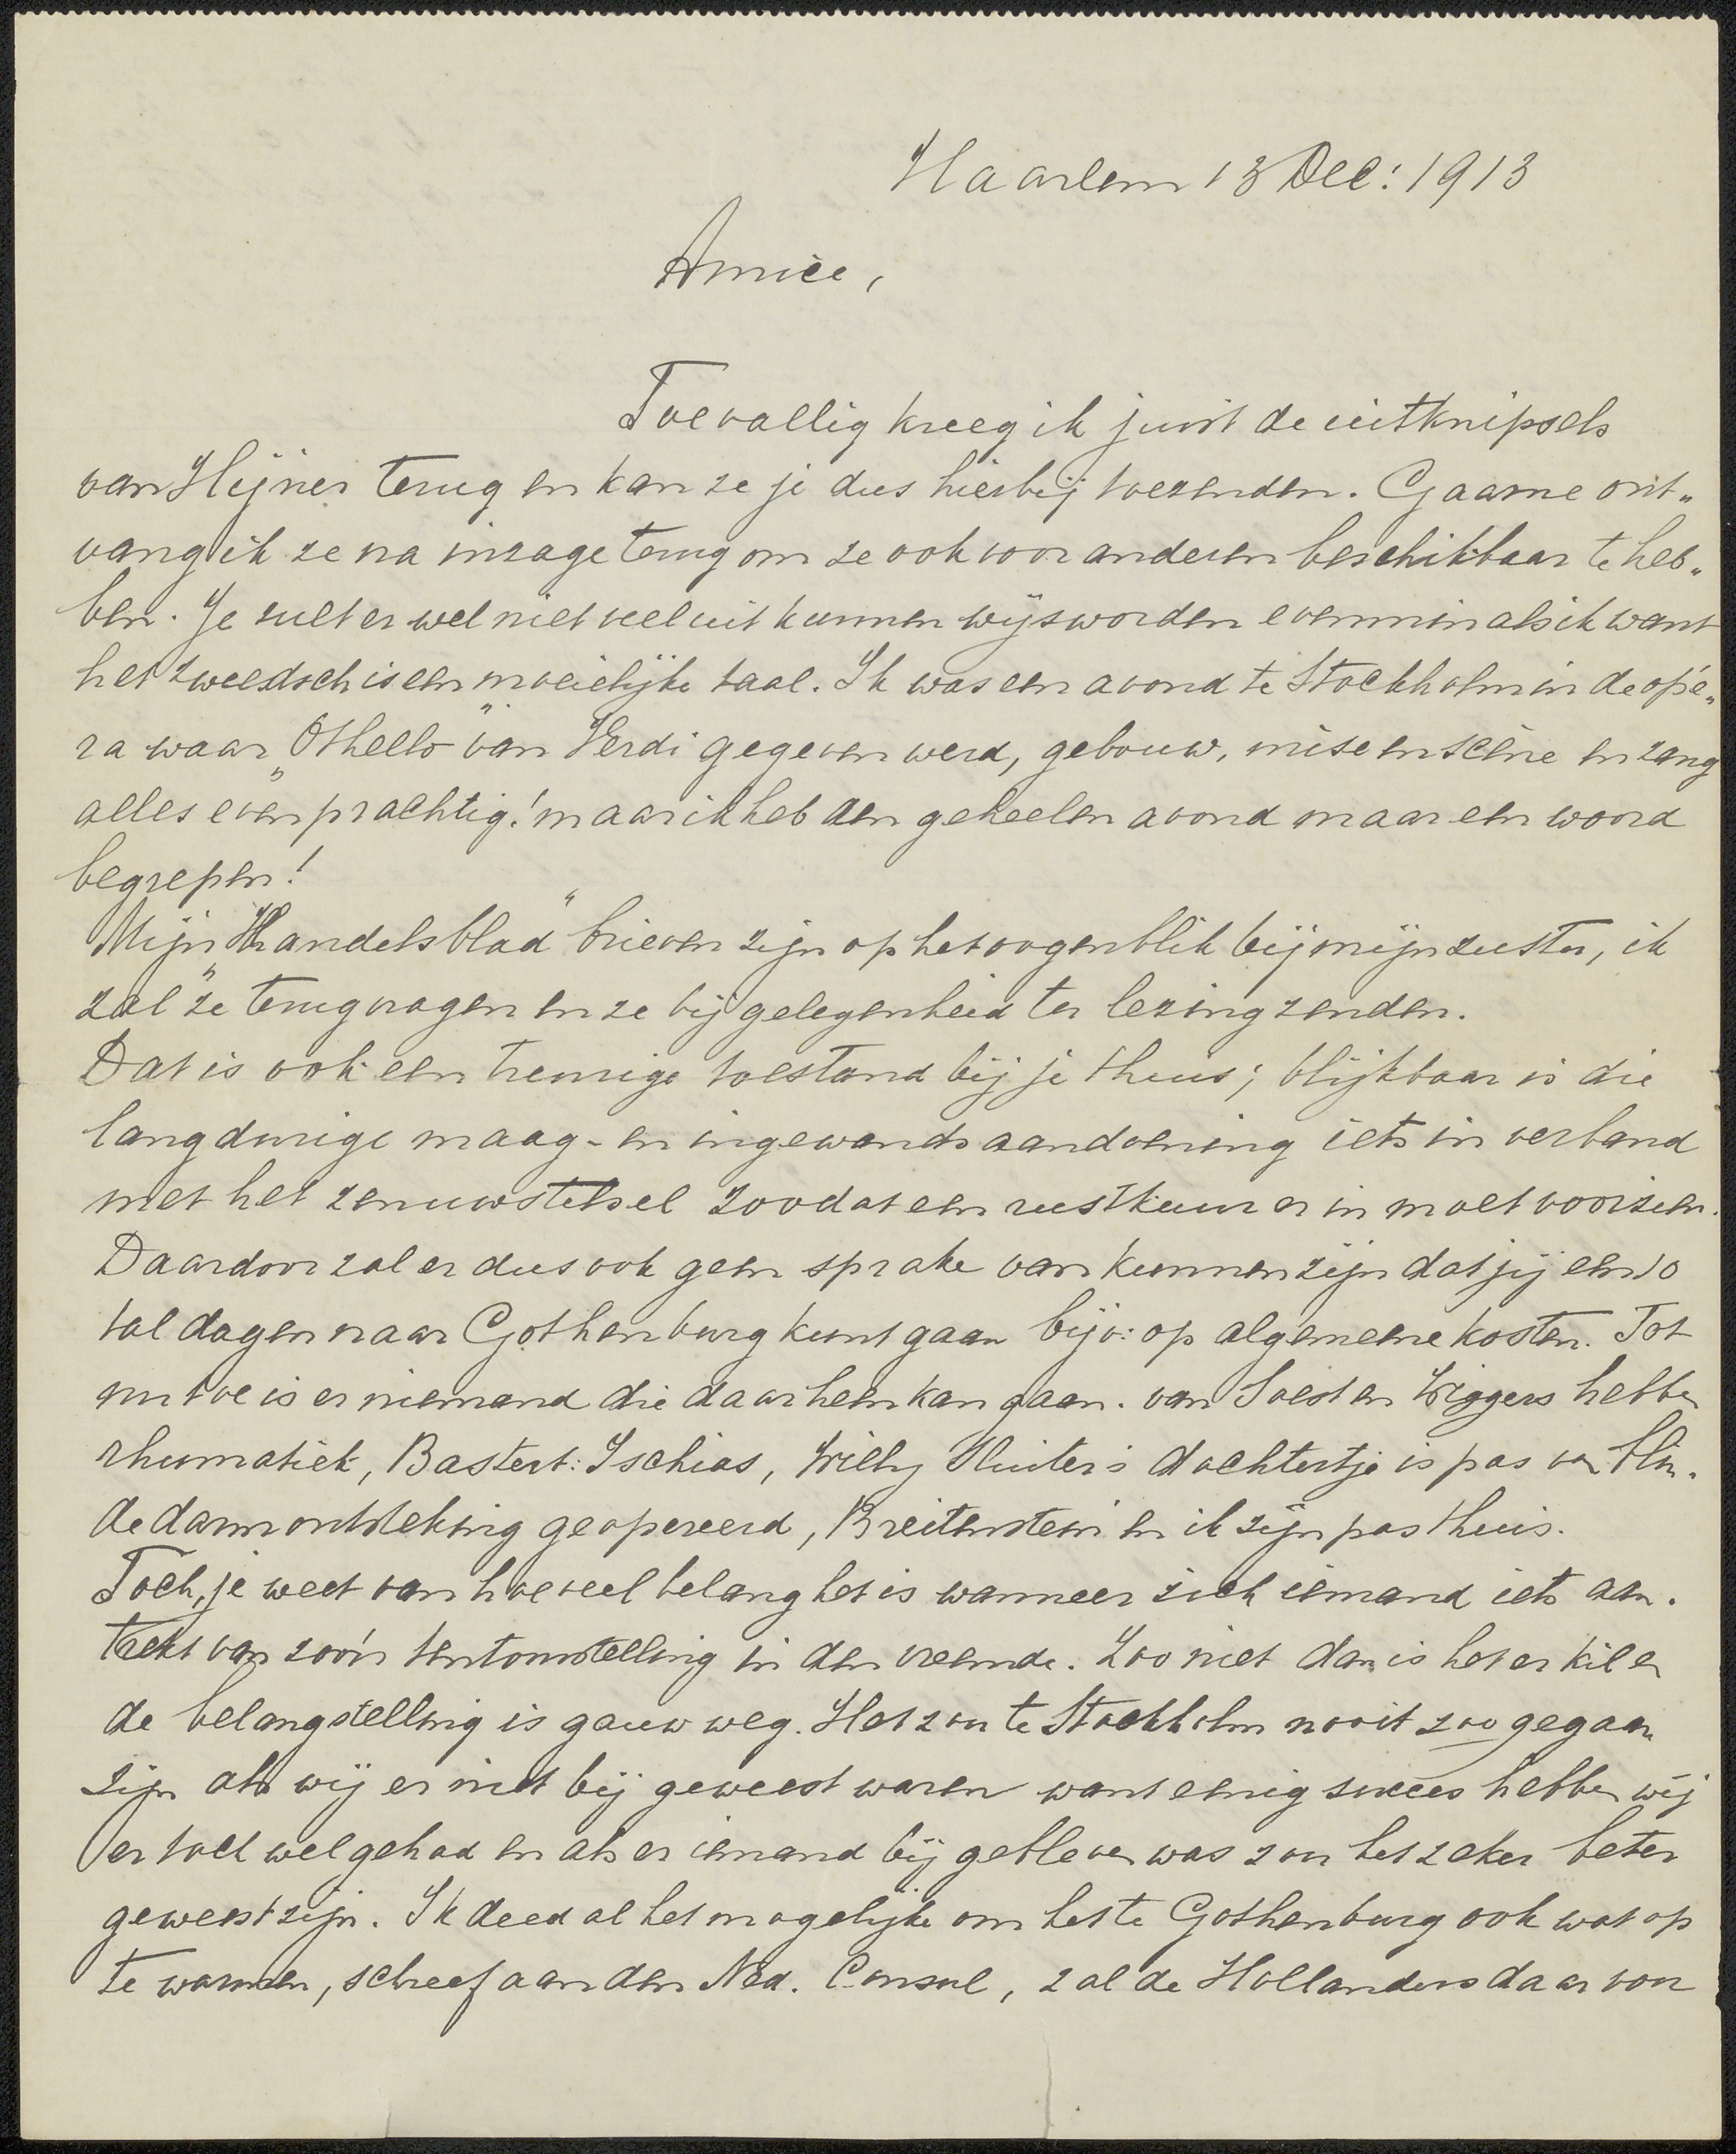 Haarlem 13 Dec: 1913
Amice,
Toevallig kreeg ik juist de uitknipsels
van Heyner terug en kan ze je dus hierbij toezenden. Gaarne ont„
vang ik ze na inzage terug om ze ook voor anderen beschikbaar te heb„
ben. Je zult er wel niet veel uit kunnen wijs worden evenmin als ik want
het zweedsch is een moeielijke taal. Ik was een avond te Stockholm in de opé„
ra waar „Othello" van Verdi gegeven werd, gebouw, mise en scène en zang
alles even prachtig! maar ik heb den geheelen avond maar een woord
begrepen!
Mijn „Handelsblad" brieven zijn op het oogenblik bij mijn zuster, ik
zal ze terugvragen en ze bij gelegenheid ter lezing zenden.
Dat is ook een treurige toestand bij je thuis; blijkbaar is die
langdurige maag- en ingewandsaandoening iets in verband
met het zenuwstelsel zoodat een rustkuur er in moet voorzien.
Daardoor zal er dus ook geen sprake van kunnen zijn dat jij een 10
tal dagen naar Gothenburg kunt gaan bijv: op algemeene kosten. Tot
nu toe is er niemand die daarheen kan gaan. van Soest en Wiggers hebben
rhumatiek, Bastert: Ischias, Willy Sluiter's dochtertje is pas van blin.
dedarmontsteking geopereerd, Breitenstein en ik zijn pas thuis.
Toch, je weet van hoeveel belang het is wanneer zich iemand iets aan.
trekt van zoo'n tentoonstelling in den vreemde. Zoo niet dan is het er kil en
de belangstelling is gauw weg. Het zou te Stockholm nooit zoo gegaan
zijn als wij er niet bij geweest waren want eenig succes hebben wij
er toch wel gehad en als er iemand bij gebleven was zou het zeker beter
geweest zijn. Ik deed al het mogelijke om het te Gothenburg ook wat op
te warmen, schreef aan den Ned. Consul, zal de Hollanders daar voor